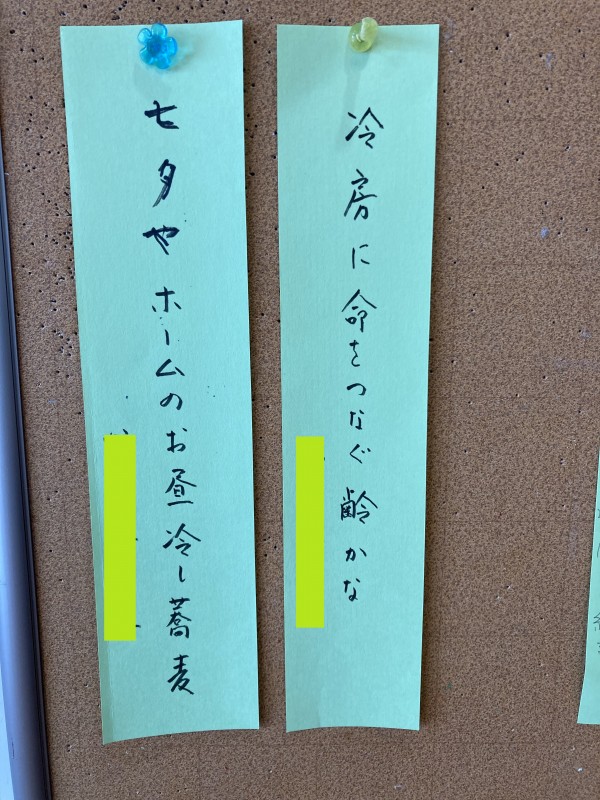 冷房に命をつなぐ齢かな
七夕やホームのお昼冷し蕎麦